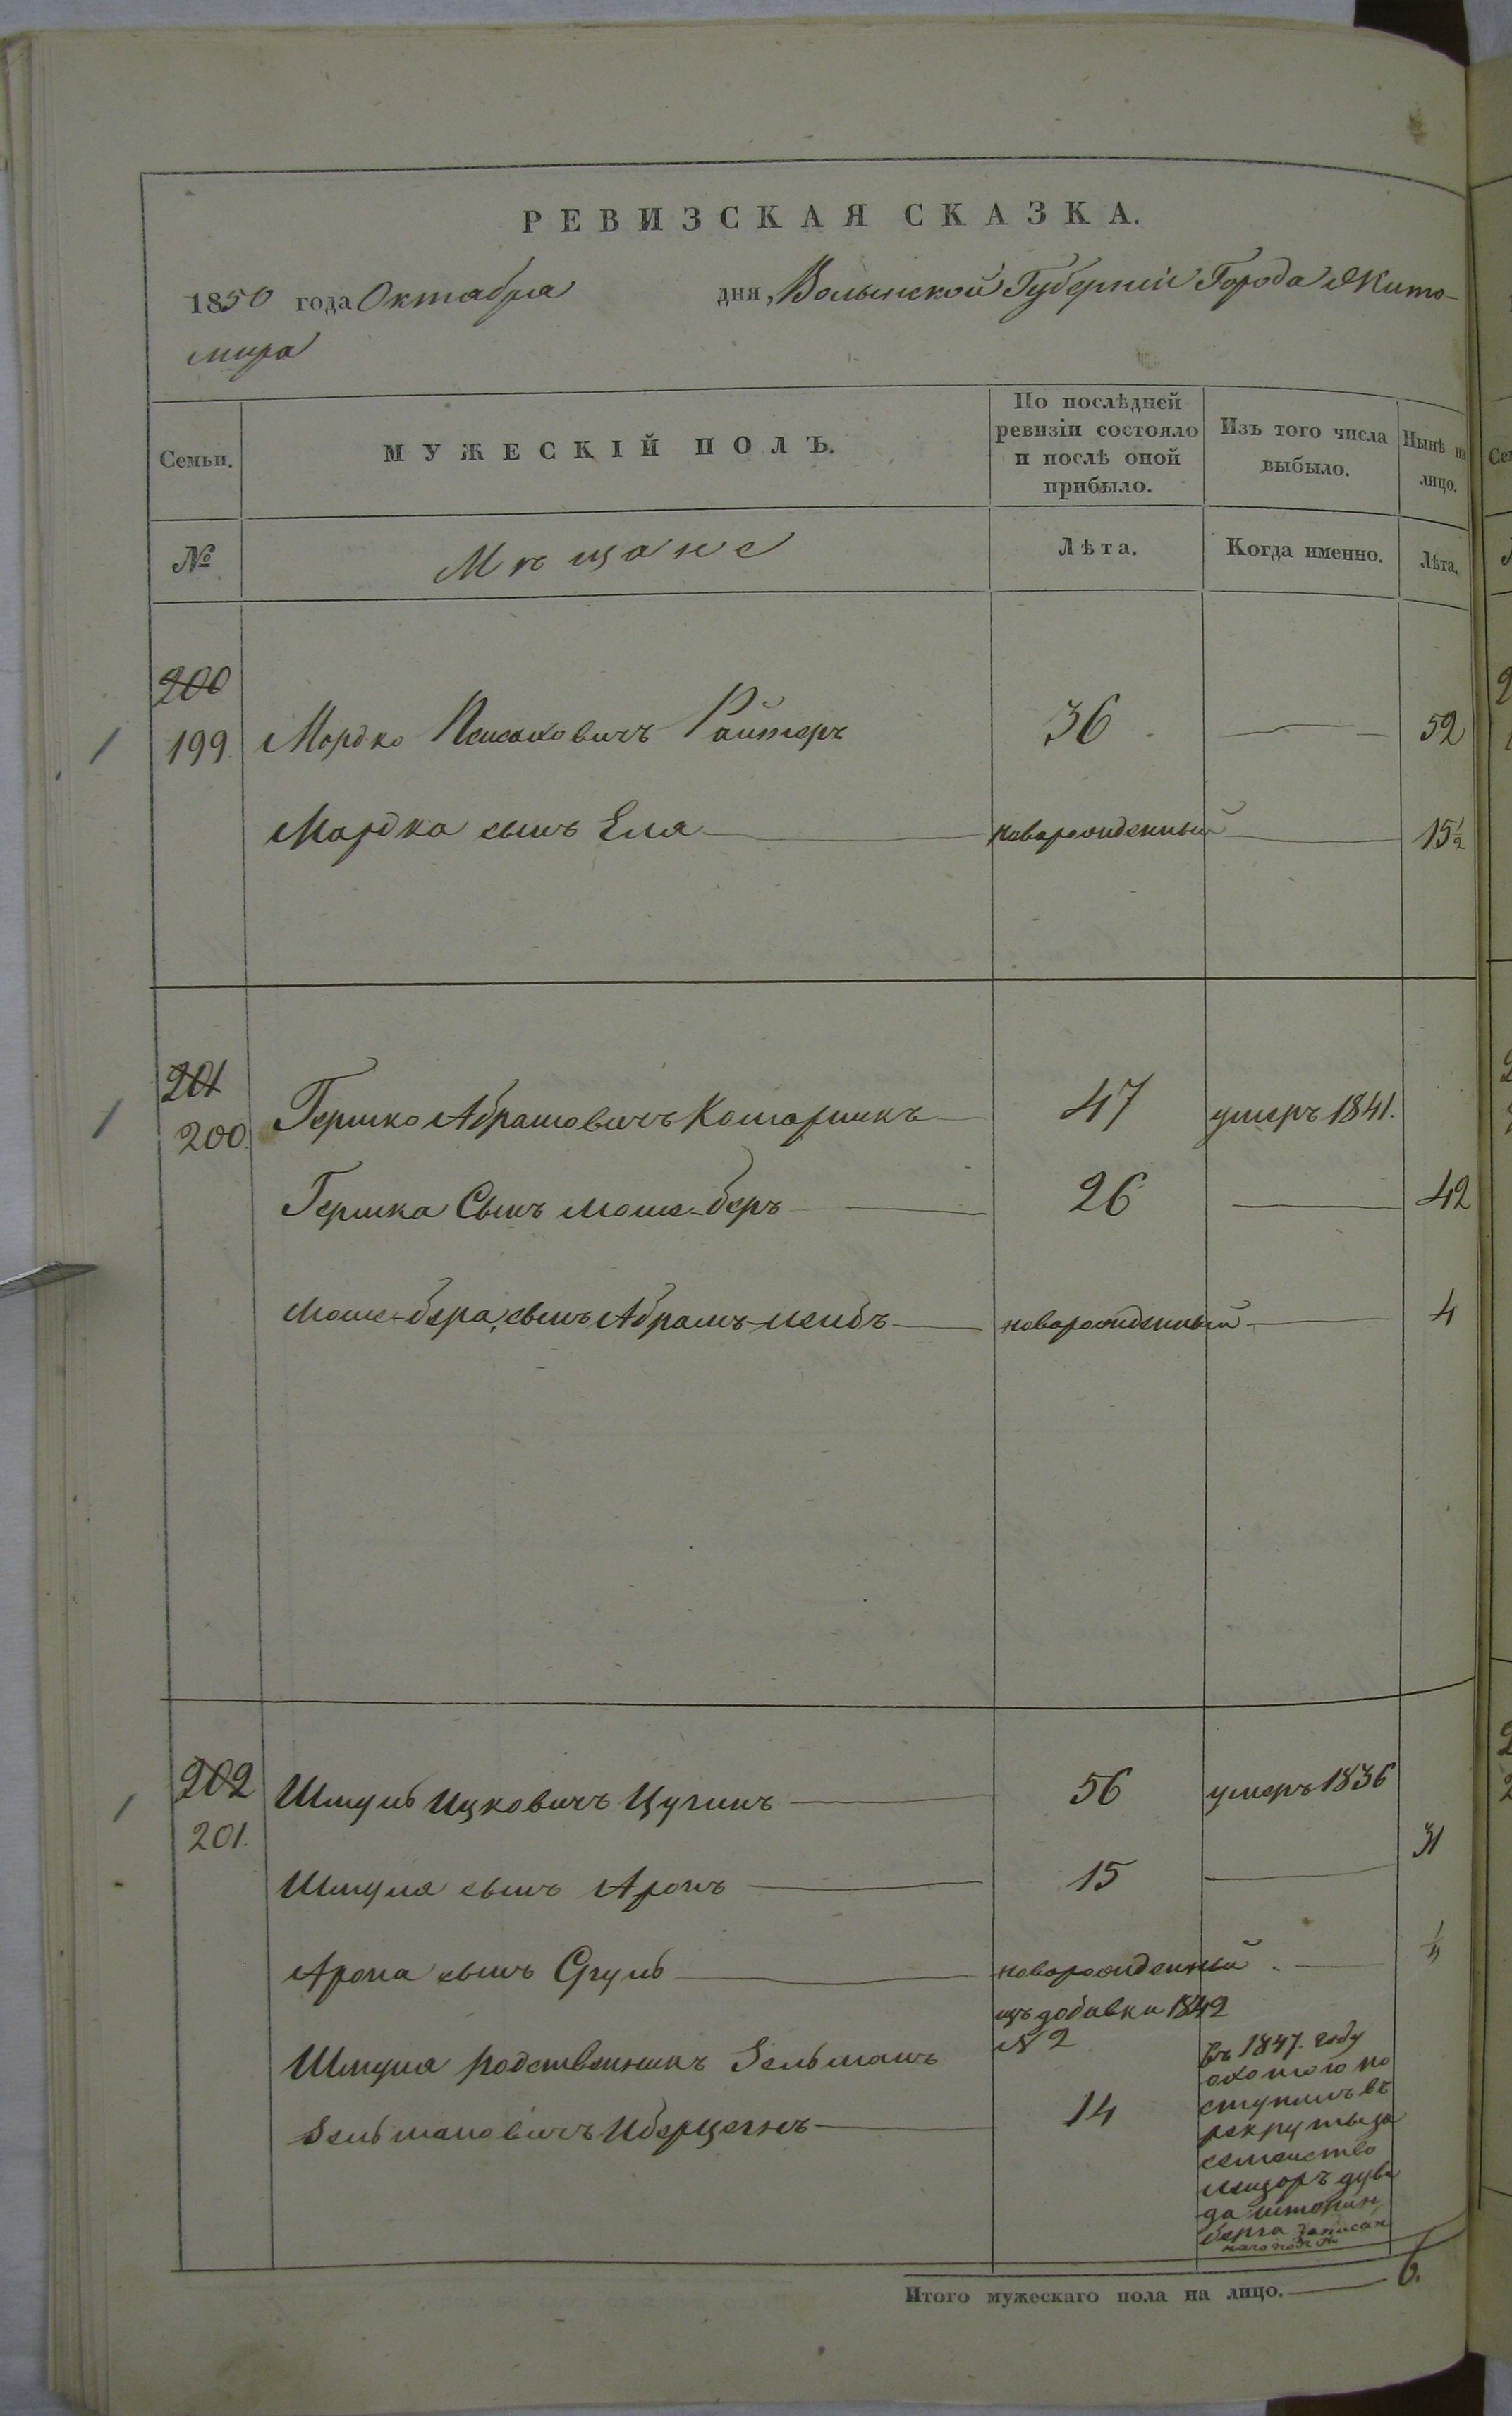 РЕВИЗСКАЯ СКАЗКА.
1850 года Октабря дня, Волынской Губерніи Города Жито-
мира
Семьи.
МУЖЕСКІЙ ПОЛЪ.
По послѣдней
ревизіи состояло
и послѣ оной
прибыло.
Изъ того числа
выбыло.
Нынѣ на
лицо.
№
Мѣщане
Лѣта.
Когда именно.
Лѣта.
200
199. Мордко Пейсаховичъ Райтеръ 36 52
Мордка сынъ Еля новорожденный 15½
201
200. Гершко Абрамовичъ 47 умеръ 1841.
Гершка Сынъ Моше-беръ 26 42
Моше-бера сынъ Абрамъ-лейбъ новорожденный 4
202 Шмуль Ицковичъ 56 умеръ 1836
201.
Шмуля сынъ Аронъ 15 31
Арона сынъ Сруль новорожденный
изъ добавки 1842
Шмуля родственникъ Зельманъ №2
Зельмановичъ 14
въ 1847. году
охотою по
ступилъ въ
рекруты за
семейство
Итого мужескаго пола на лицо. 6.